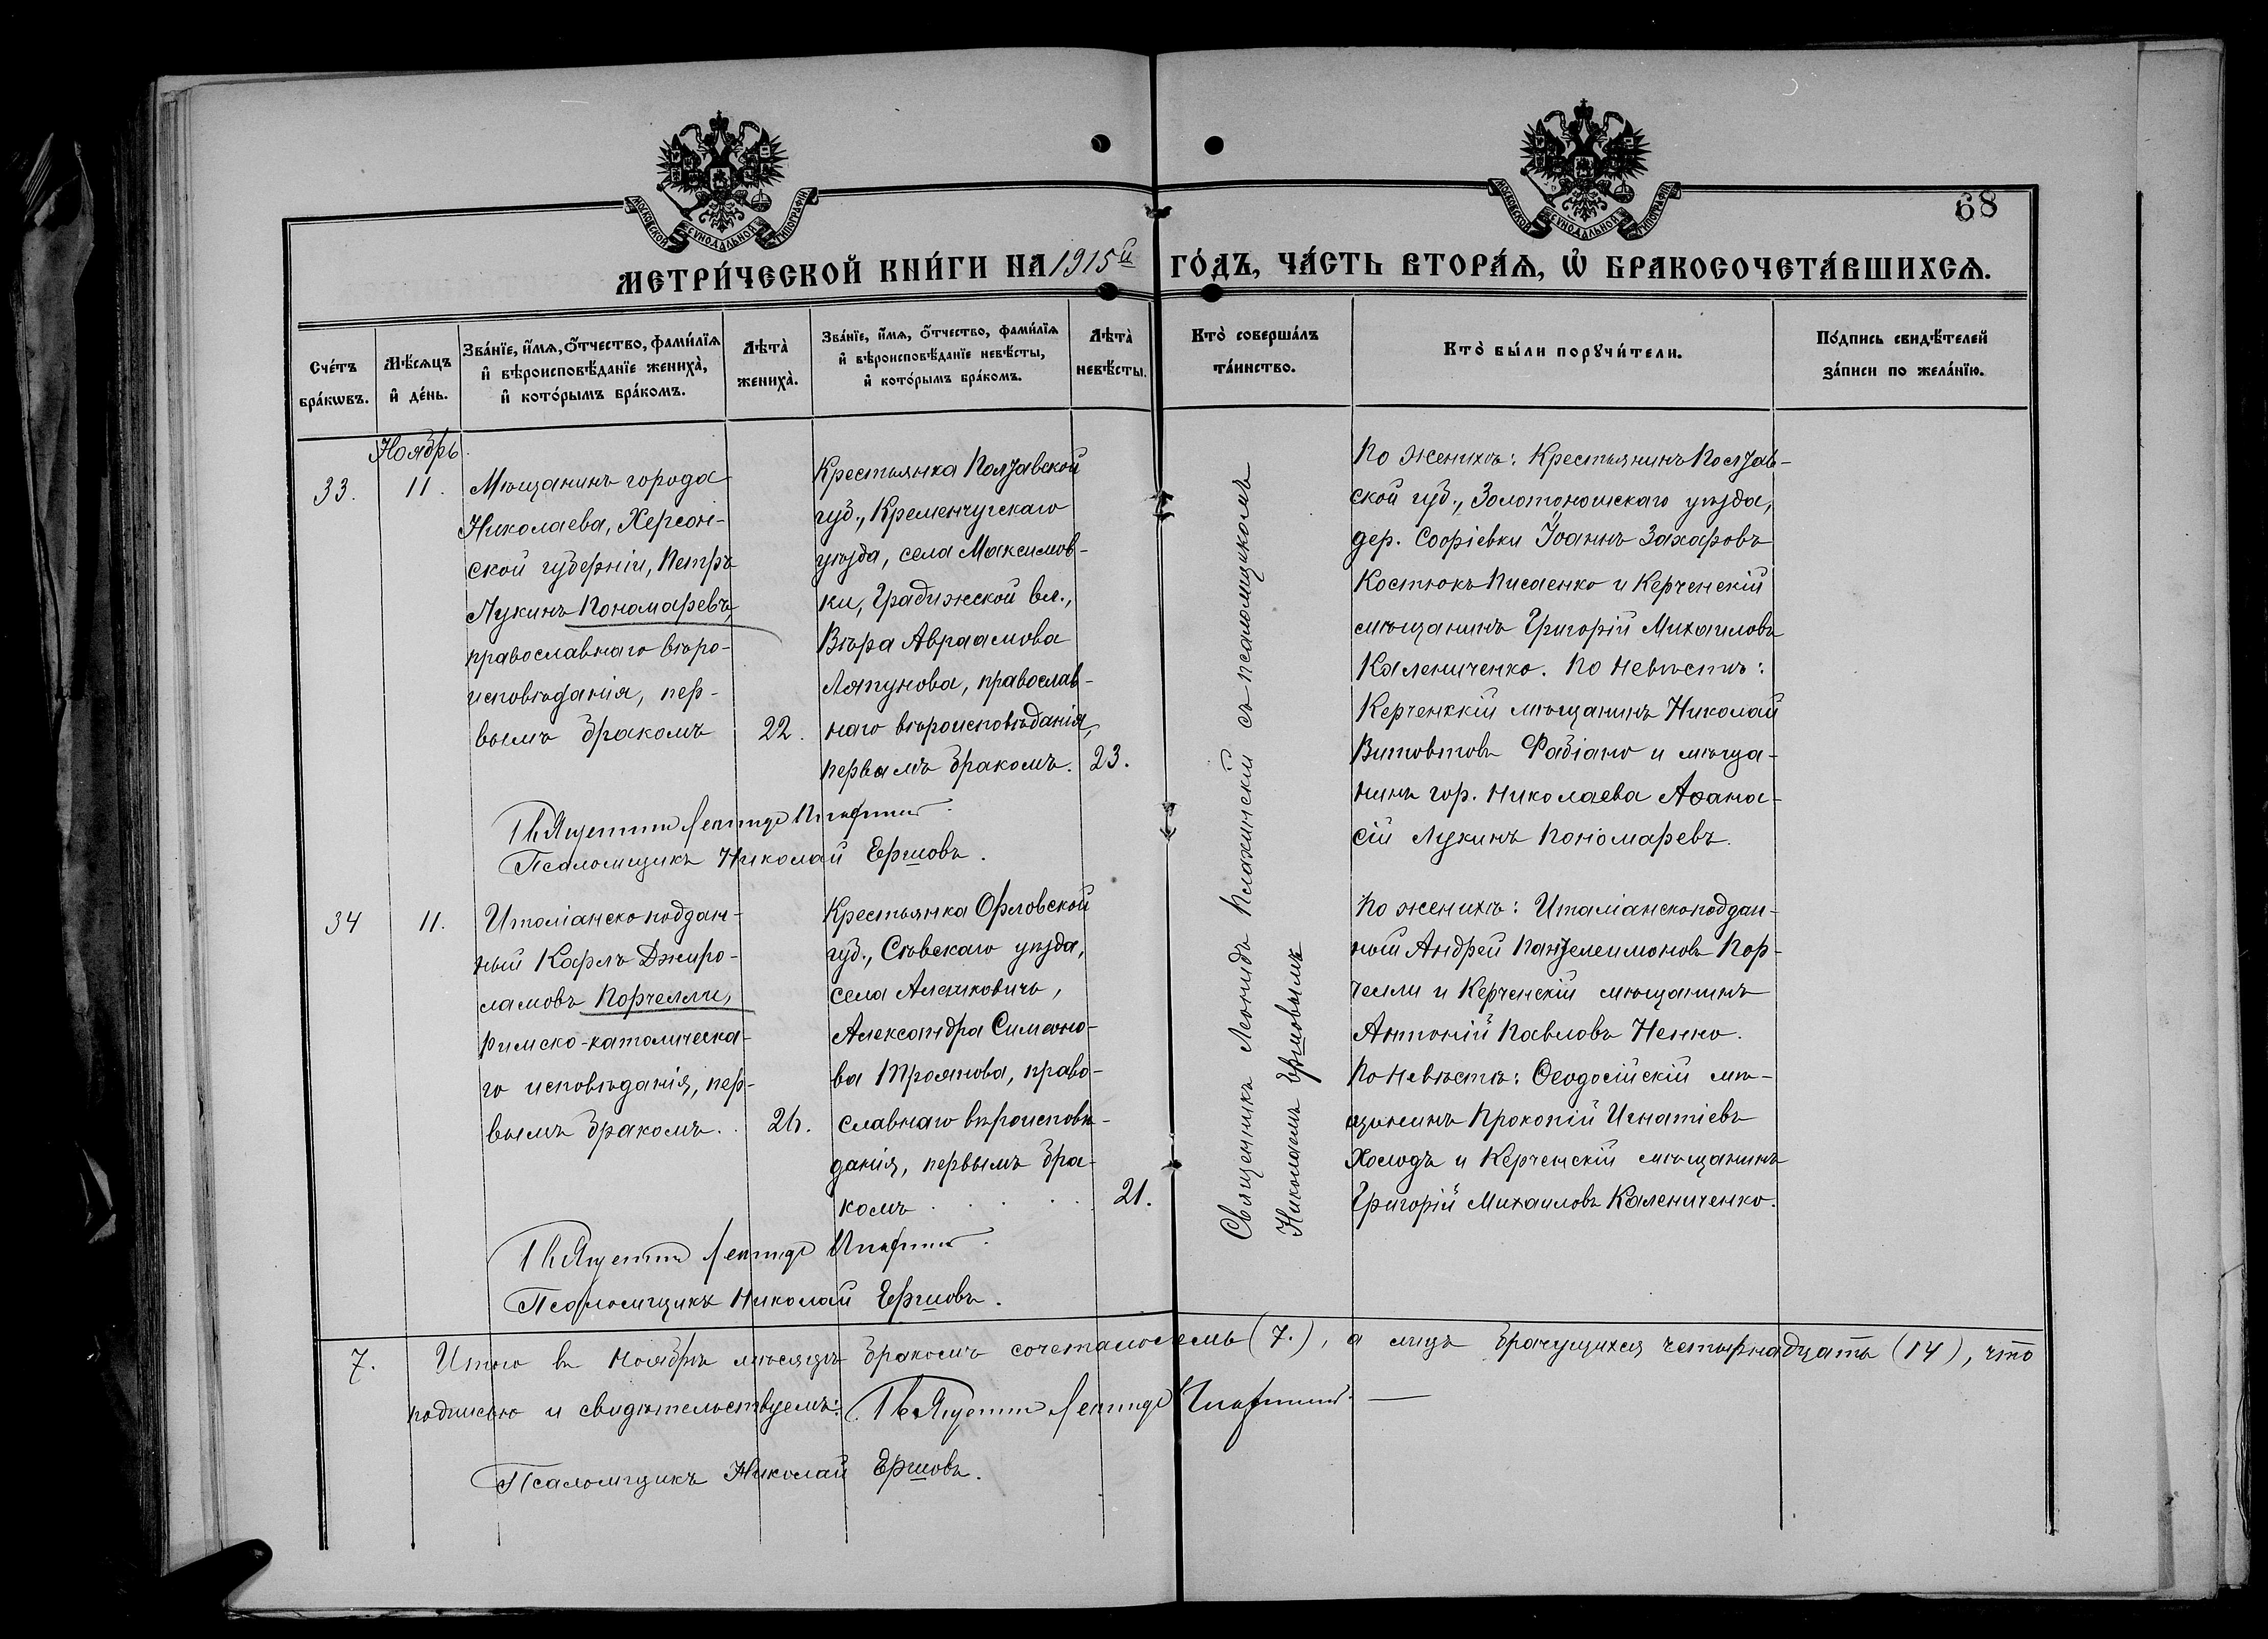 МОСКОВСКОЙ СѴНОДАЛЬНОЙ ТИПОГРАФІИ
МОСКОВСКОЙ СѴНОДАЛЬНОЙ ТИПОГРАФІИ
68
МЕТРИ́ЧЕСКОЙ КНИ́ГИ НА 1915й ГО́ДЪ, ЧА́СТЬ ВТОРА́Ѧ, Ѡ҆ БРАКОСОЧЕТА́ВШИХСѦ.
Сче́тъ бра́кѡвъ.
Мѣ́сяцъ и҆ де́нь.
Зва́нїе, и҆́мѧ, ѻ҆́тчество, фами́лїѧ
и҆ вѣроисповѣ́данїе жениха̀,
и҆ кото́рымъ бра́комъ.
Лѣта̀ жениха̀.
Зва́нїе, и҆́мѧ, ѻ҆́тчество, фами́лїѧ
и҆ вѣроисповѣ́данїе невѣ́сты,
и҆ кото́рымъ бра́комъ.
Лѣта̀ невѣ́сты.
Кто̀ соверша́лъ
та́инство.
Кто̀ бы́ли порꙋчи́тели.
По́дпись свидѣ́телей
за́писи по жела́нїю.
Ноябрь.
33.
11.
Мѣщанинъ города
Николаева, Херсон-
ской губерніи, Петръ
Лукинъ Пономаревъ,
православнаго вѣро-
исповѣданія, пер-
вымъ бракомъ
22.
Крестьянка Полтавской
губ., Кременчугскаго
уѣзда, села Максимов-
ки, Градижской вл.,
Вѣра Авраамова
Ляпунова, православ-
наго вѣроисповѣданія,
первымъ бракомъ.
23.
Священникъ Леонидъ съ псаломщикомъ
Николаемъ Ершовымъ
По женихѣ: Крестьянинъ Полтав-
ской губ., Золотоношскаго уѣзда,
дер. Софіевки Іоаннъ Захаровъ
Костюкъ Писаенко и Керченскій
мѣщанинъ Григорій Михаиловъ
Калениченко. По невѣстѣ:
Керченккій мѣщанинъ Николай
Витовтовъ Фабіано и мѣща-
нинъ гор. Николаева Аѳана-
сій Лукинъ Пономаревъ.
Священникъ Леонидъ
Псаломщикъ Николай Ершовъ.
34
11.
Италіанскоподдан-
ный Карлъ Джиро-
ламовъ Порчелли,
Римско-католическа-
го исповѣданія, пер-
вымъ бракомъ. .
Крестьянка Орловской
губ., Сѣвскаго уѣзда,
села Алешковичъ,
Александра Симеоно-
ва Троянова, право-
славнаго вѣроисповѣ-
данія, первымъ бра-
комъ . . . .
21.
По женихѣ: Италіанскоподдан-
ный Андрей Пантелеимоновъ Пор-
челли и Керченскій мѣщанинъ
Антоній Павловъ Ненно.
По невѣстѣ: Ѳеодосійскій мѣ-
щанинъ Прокопій Игнатіевъ
Холодъ и Керченскій мѣщанинъ
Григорій Михаиловъ Калениченко.
Священникъ Леонидъ
Псаломщикъ Николай Ершовъ.
7.
Итого въ Ноябрѣ мѣсяцѣ бракомъ сочеталось семь (7.), а лицъ брачущихся четырнадцать (14), что
подписью и свидѣтельствуемъ: Священникъ Леонидъ
Псаломщикъ Николай Ершовъ.